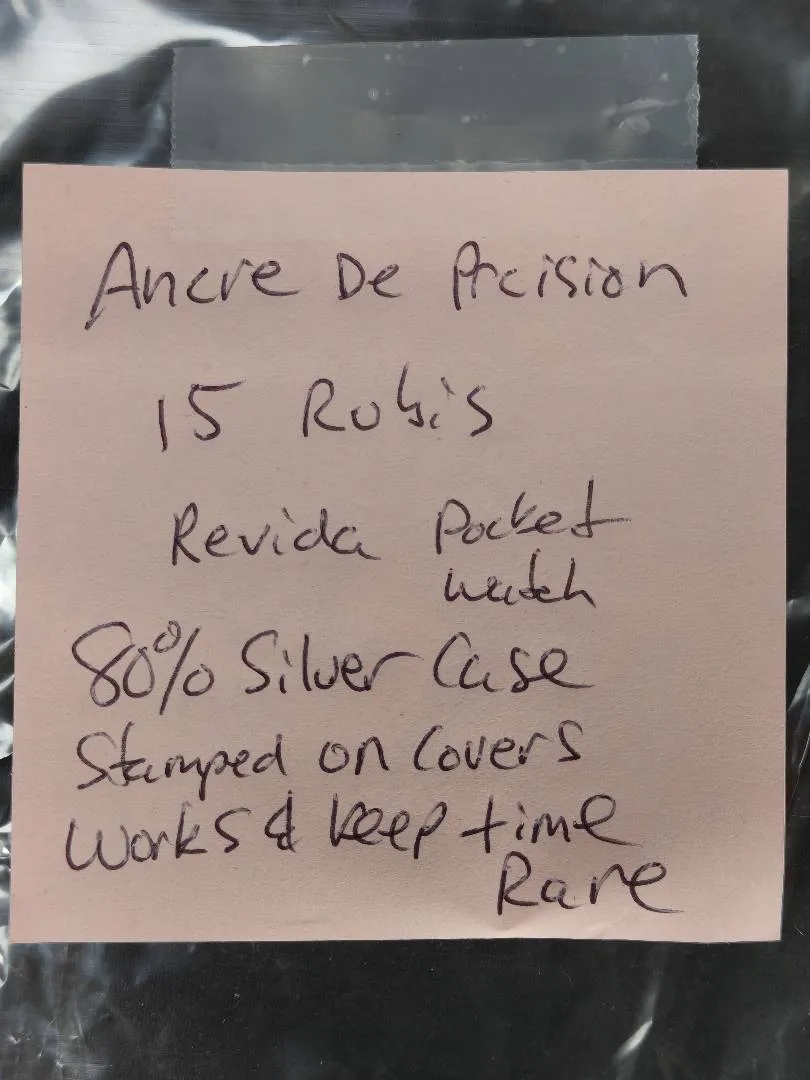 Ancre De Prcision
15 Rubis
Revida Pocket
watch
80% Silver Case
Stamped on Covers
Works & keep time
Rare